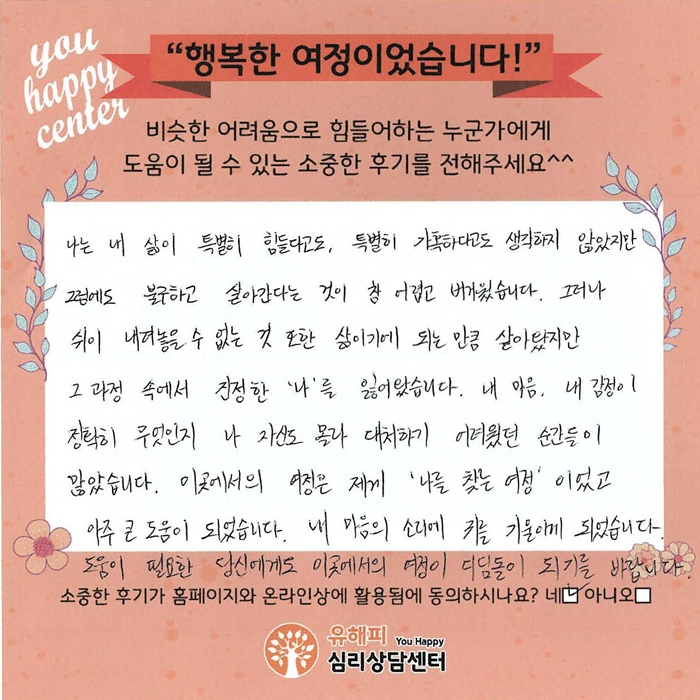 you
happy
center
“행복한 여정이었습니다!”
비슷한 어려움으로 힘들어하는 누군가에게
도움이 될 수 있는 소중한 후기를 전해주세요^^
나는 내 삶이 특별히 힘들다고도, 특별히 가혹하다고도 생각하지 않았지만
그럼에도 불구하고 살아간다는 것이 참 어렵고 버거웠습니다. 그러나
쉬이 내려놓을 수 없는 것 또한 삶이기에 되는 만큼 살아왔지만
그 과정 속에서 진정한 ‘나’를 잃어왔습니다. 내 마음, 내 감정이
정확히 무엇인지 나 자신도 몰라 대처하기 어려웠던 순간들이
많았습니다. 이곳에서의 여정은 제게 ‘나를 찾는 여정’ 이었고
아주 큰 도움이 되었습니다. 내 마음의 소리에 귀를 기울이게 되었습니다.
도움이 필요한 당신에게도 이곳에서의 여정이 디딤돌이 되기를 바랍니다
소중한 후기가 홈페이지와 온라인상에 활용됨에 동의하시나요? 네☑ 아니오□
유해피 You Happy
심리상담센터